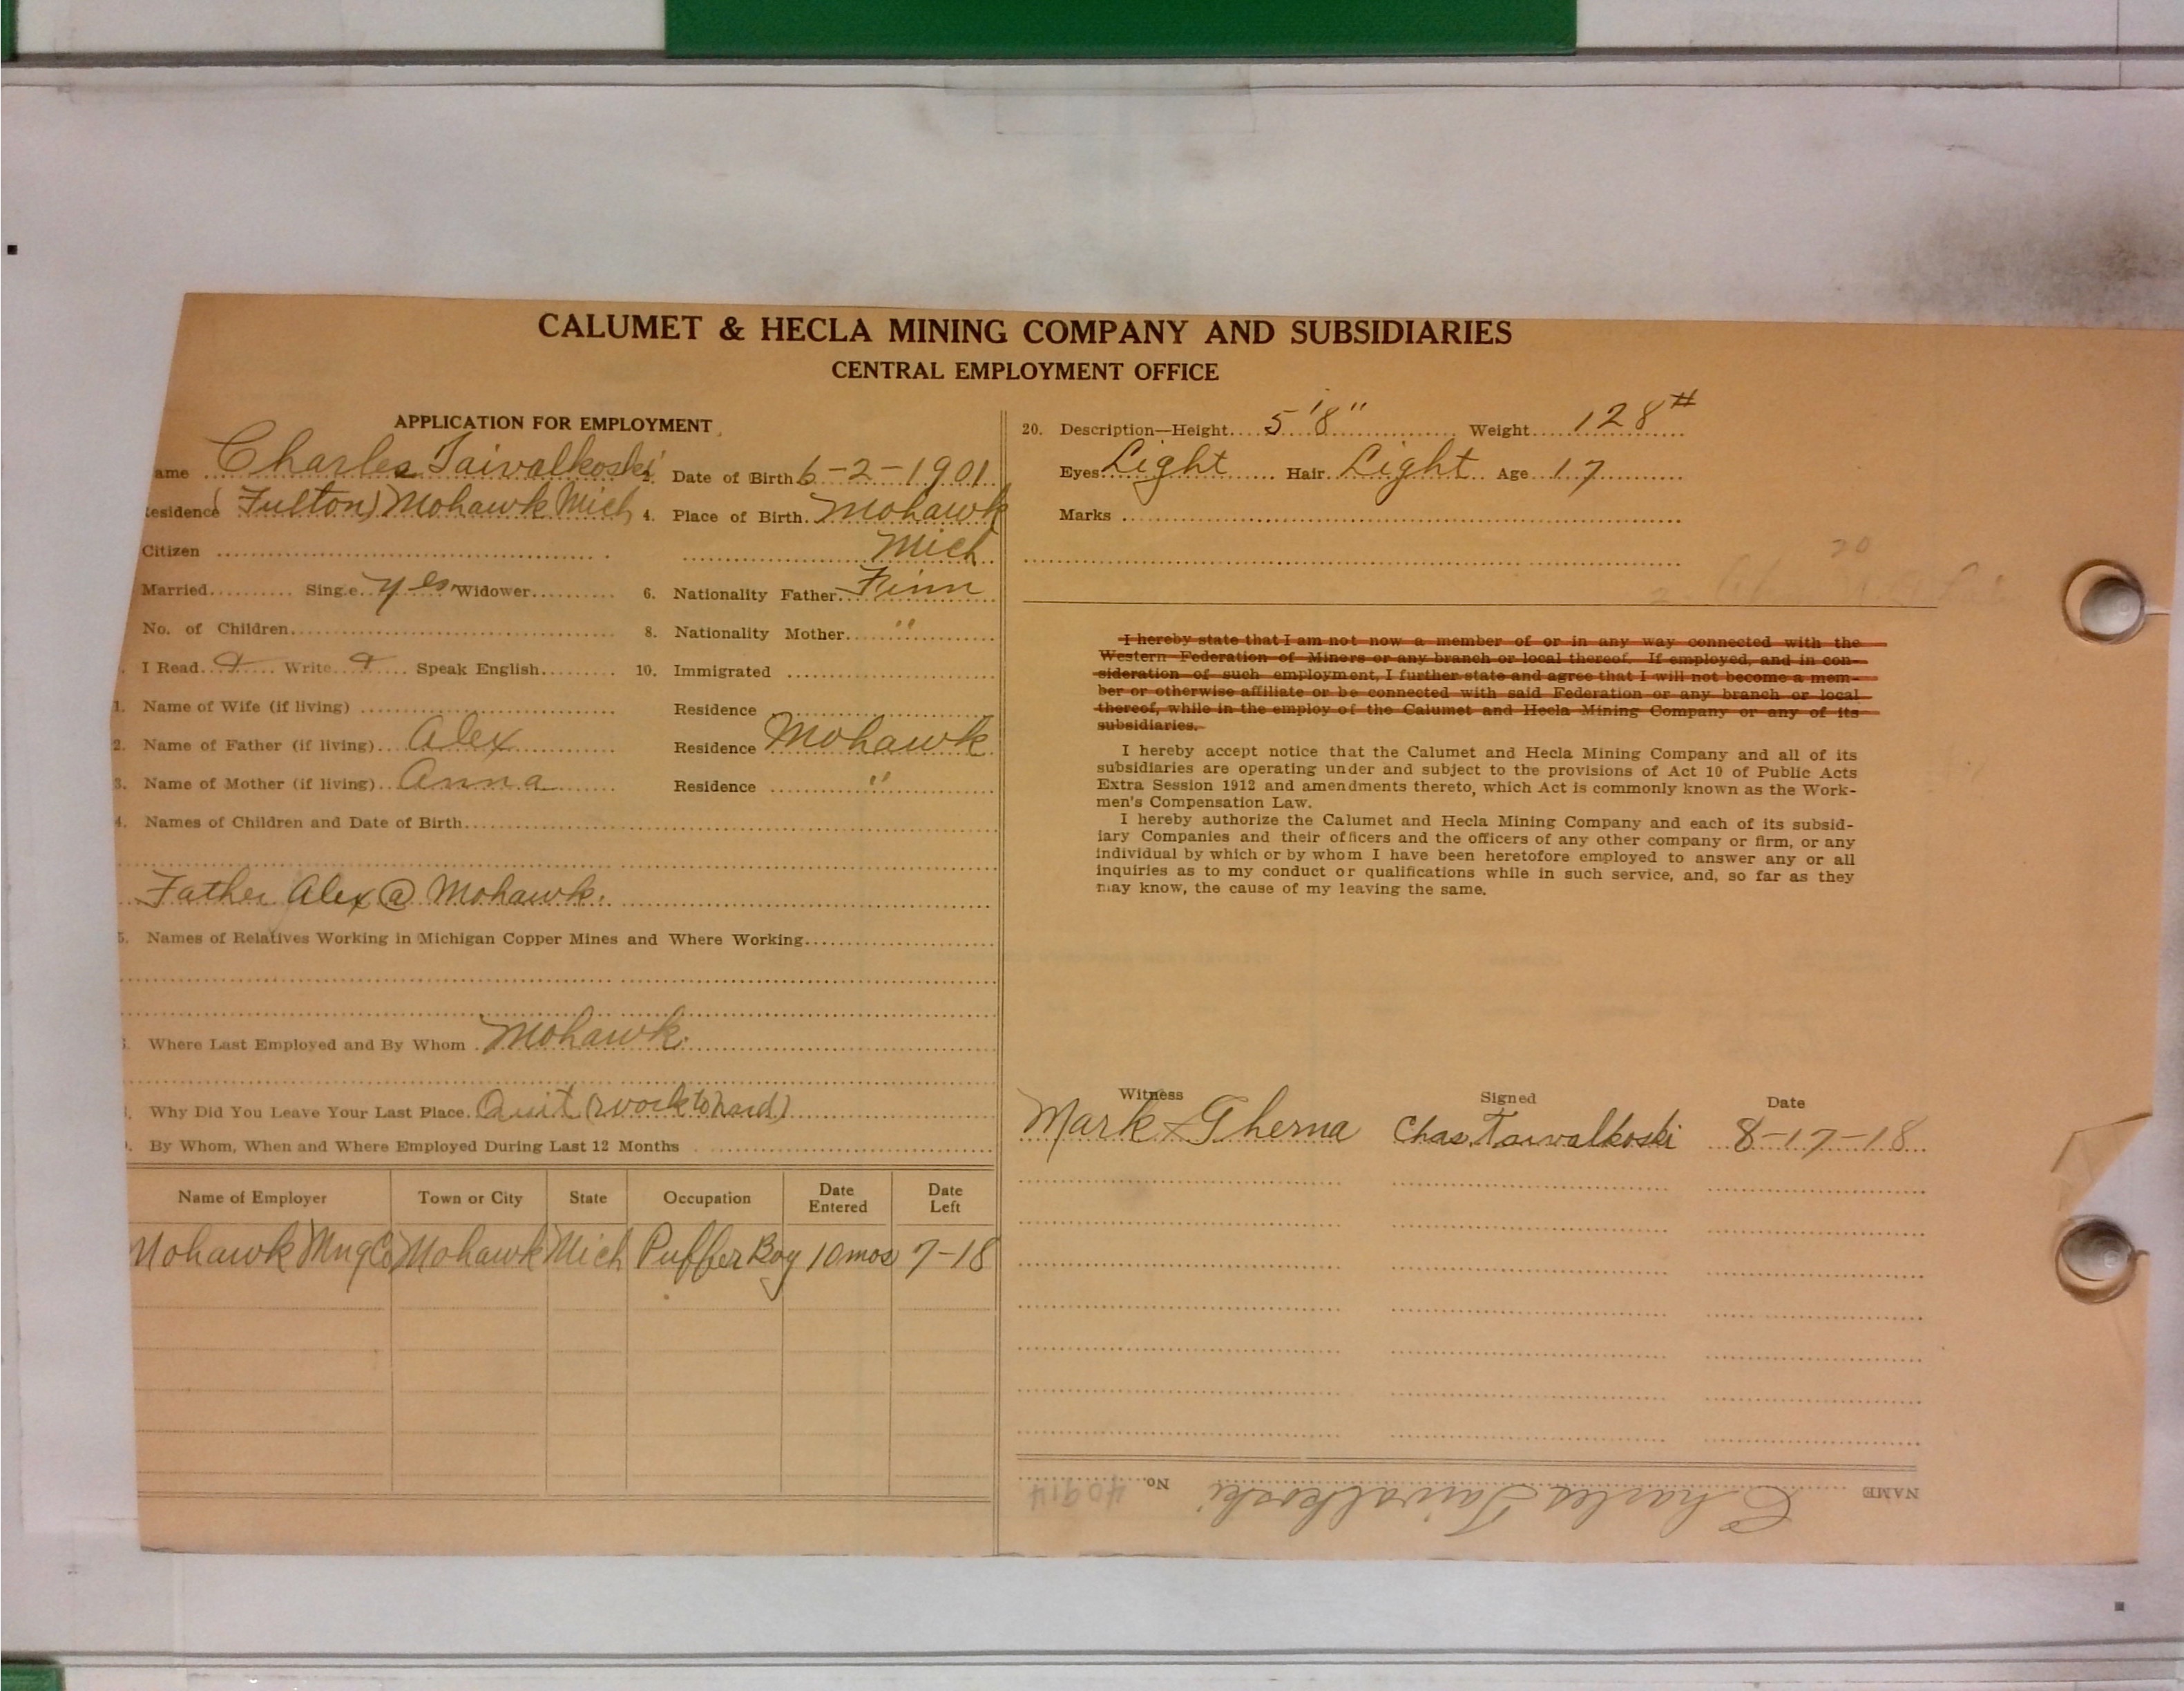 CALUMET & HECLA MINING COMPANY AND SUBSIDIARIES
CENTRAL EMPLOYMENT OFFICE
APPLICATION FOR EMPLOYMENT
ame Charles Taivalkoski 2. Date of Birth 6-2-1901
Residence (Fulton) Mohawk Mich 4. Place of Birth Mohawk
Citizen Mich
Married Single yes Widower 6. Nationality Father Finn
No. of Children 8. Nationality Mother "
I Read Write Speak English 10. Immigrated
1. Name of Wife (if living) Residence
2. Name of Father (if living) Alex Residence Mohawk
3. Name of Mother (if living) Anna Residence "
4. Names of Children and Date of Birth
Father Alex @ Mohawk.
5. Names of Relatives Working in Michigan Copper Mines and Where Working
Where Last Employed and By Whom Mohawk.
Why Did You Leave Your Last Place. Quit (work to hard)
By Whom, When and Where Employed During Last 12 Months
Name of Employer Town or City State Occupation Date Entered Date Left
Mohawk Mng Co Mohawk Mich Puffer Boy 10 mos 7-18
20. Description—Height 5'8" Weight 128#
Eyes Light Hair Light Age 17
Marks
20
I hereby state that I am not now a member of or in any way connected with the
Western Federation of Miners or any branch or local thereof. If employed, and in con-
sideration of such employment, I further state and agree that I will not become a mem-
ber or otherwise affiliate or be connected with said Federation or any branch or local
thereof, while in the employ of the Calumet and Hecla Mining Company or any of its
subsidiaries.
I hereby accept notice that the Calumet and Hecla Mining Company and all of its
subsidiaries are operating under and subject to the provisions of Act 10 of Public Acts
Extra Session 1912 and amendments thereto, which Act is commonly known as the Work-
men's Compensation Law.
I hereby authorize the Calumet and Hecla Mining Company and each of its subsid-
iary Companies and their officers and the officers of any other company or firm, or any
individual by which or by whom I have been heretofore employed to answer any or all
inquiries as to my conduct or qualifications while in such service, and, so far as they
may know, the cause of my leaving the same.
Witness Signed Date
Mark Gherna Chas. Taivalkoski 8-17-18
NAME Charles Taivalkoski No. 40914